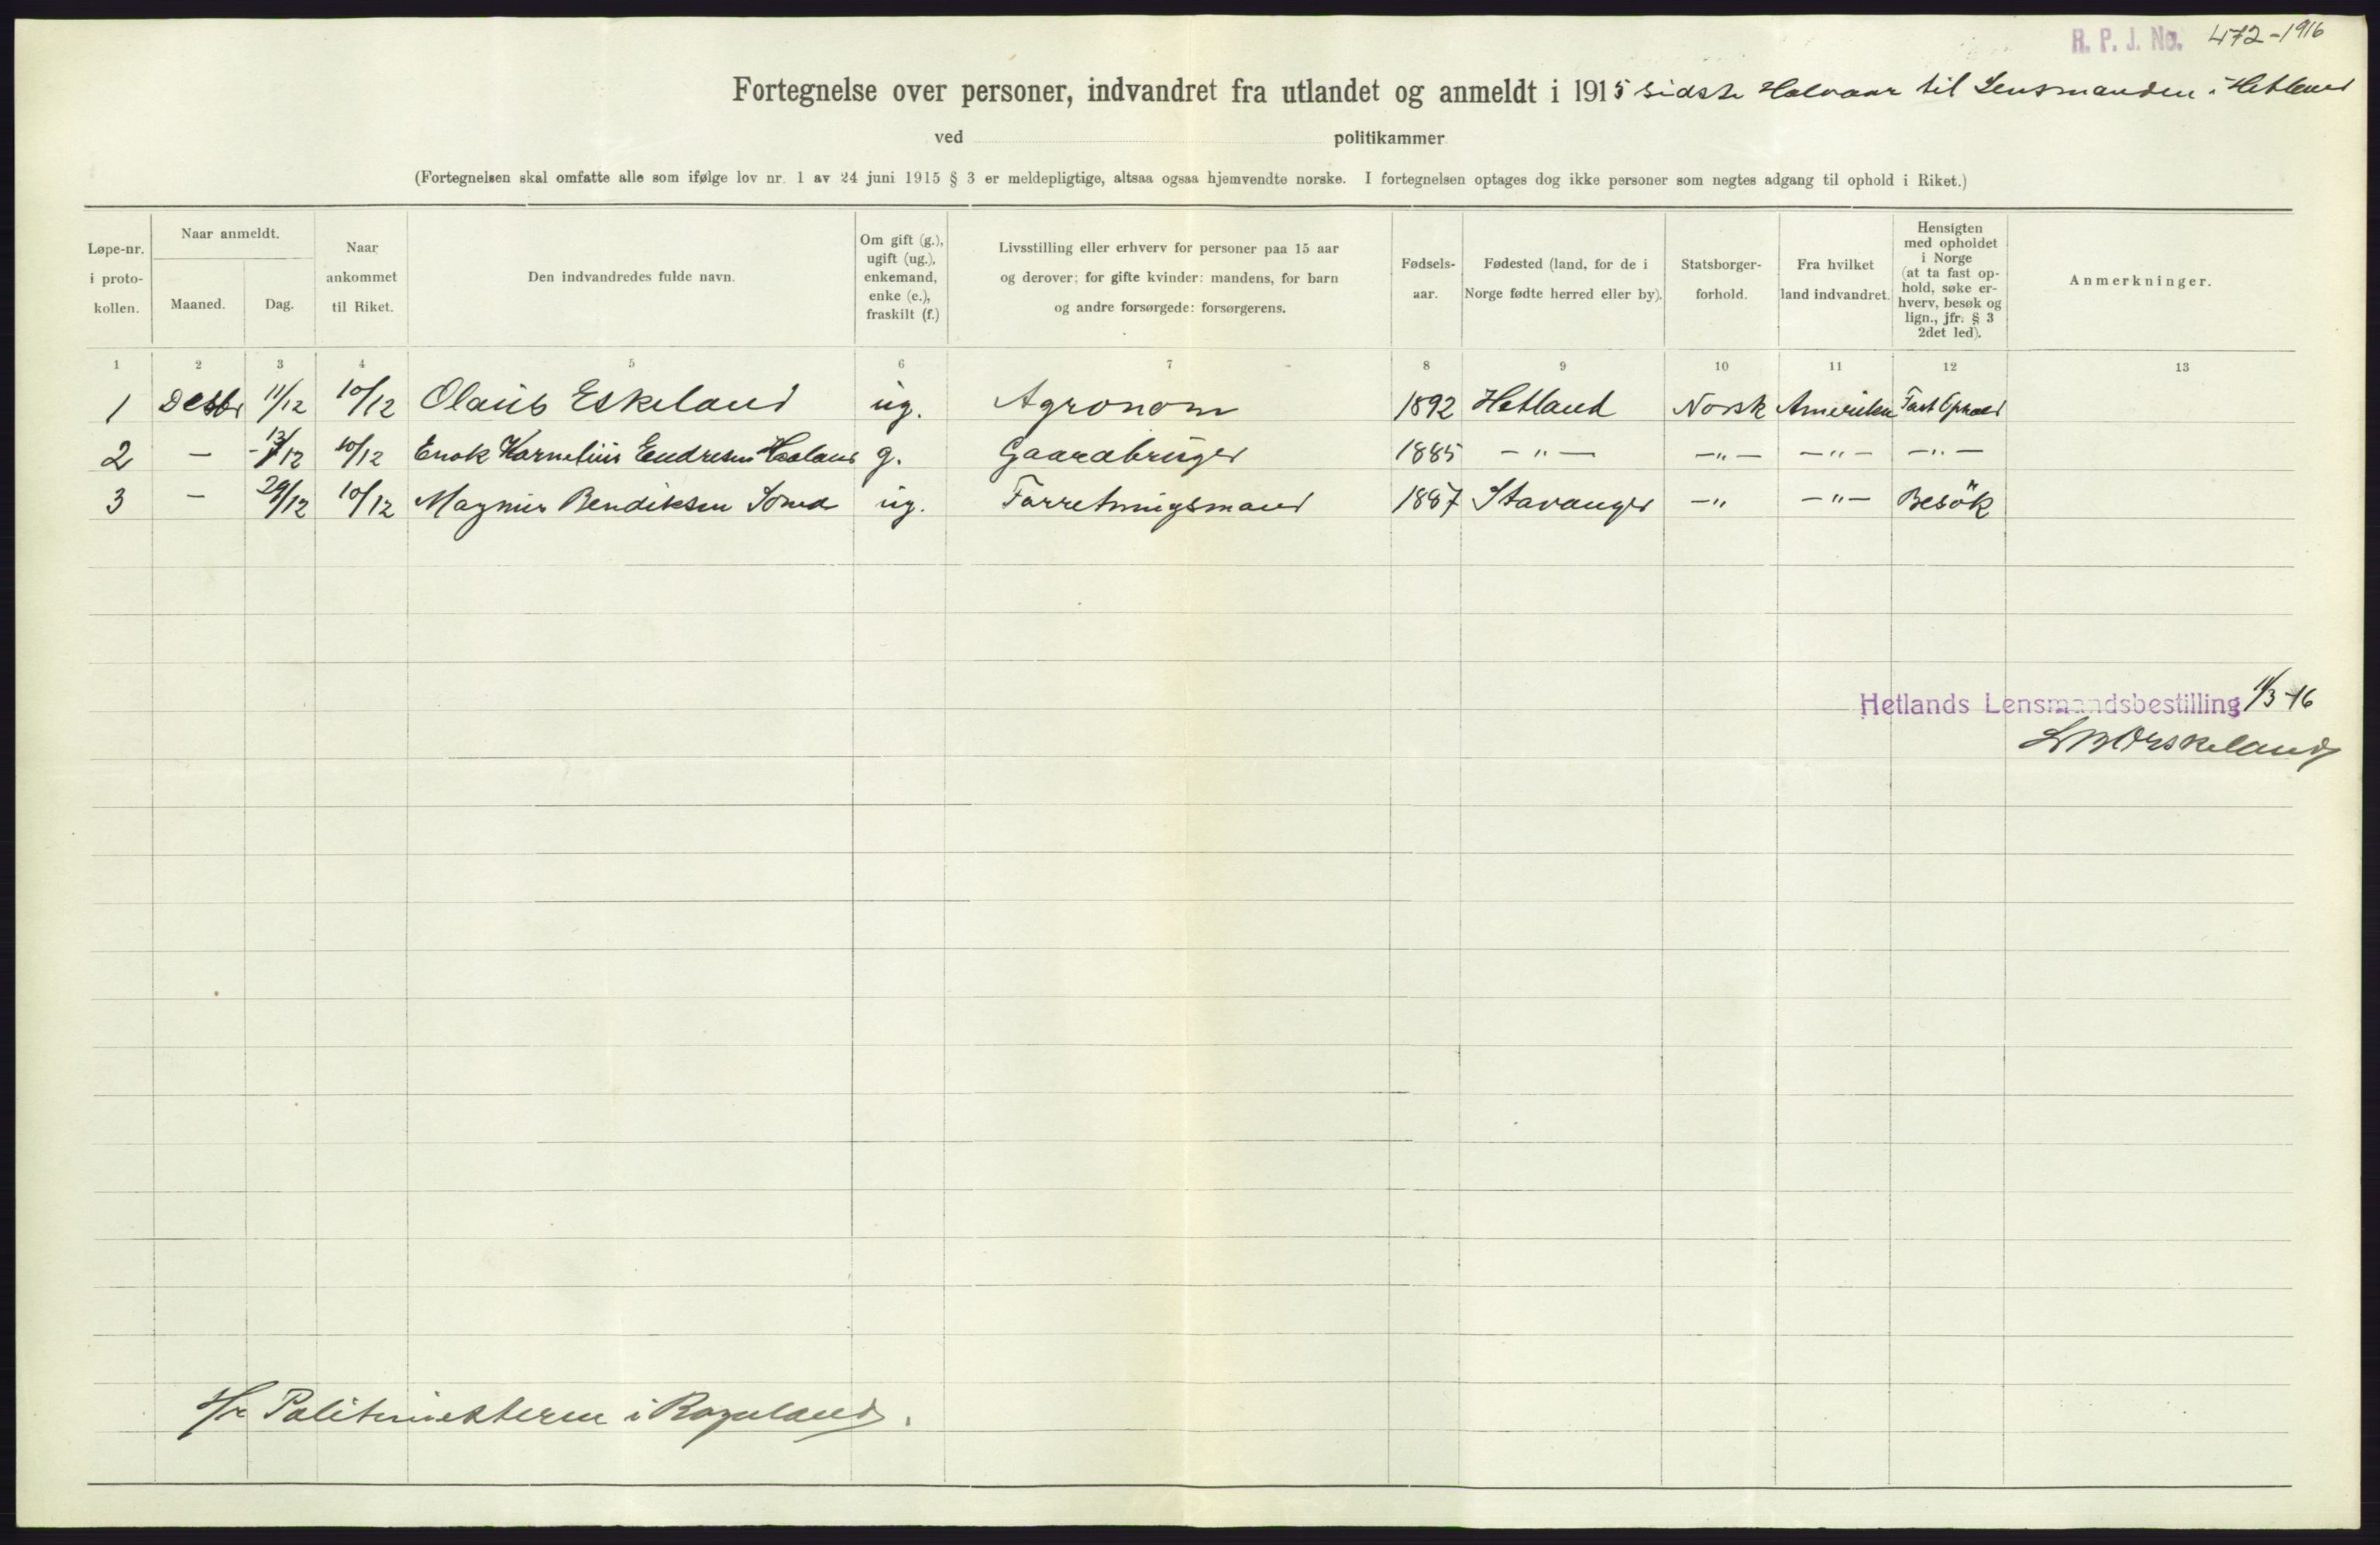 R. P. J. No. 472-1916
Fortegnelse over personer, indvandret fra utlandet og anmeldt i 1915 sidste Halvaar til Lensmanden i Hetland
ved politikammer
(Fortegnelsen skal omfatte alle som ifølge lov nr. 1 av 24 juni 1915 § 3 er meldepligtige, altsaa ogsaa hjemvendte norske. I fortegnelsen optages dog ikke personer som negtes adgang til ophold i Riket.)
Løpe-nr. i proto- kollen.
Naar anmeldt.
Maaned. Dag.
Naar ankommet til Riket.
Den indvandredes fulde navn.
Om gift (g.), ugift (ug.), enkemand, enke (e.), fraskilt (f.)
Livsstilling eller erhverv for personer paa 15 aar og derover; for gifte kvinder: mandens, for barn og andre forsørgede: forsørgerens.
Fødsels- aar.
Fødested (land, for de i Norge fødte herred eller by).
Statsborger- forhold.
Fra hvilket land indvandret.
Hensigten med opholdet i Norge (at ta fast op- hold, søke er- hverv, besøk og lign., jfr. § 3 2det led).
Anmerkninger.
1 2 3 4 5 6 7 8 9 10 11 12 13
1 Desbr 11/12 10/12 Olaus Eskeland ug. Agronom 1892 Hetland Norsk Amerika Fast Ophold
2 — 13/12 10/12 Enok Kornelius Endresen Haaland g. Gaardbruger 1885 — " — — " — — " — — " —
3 — 29/12 10/12 Magnus Bendiksen Sømd ug. Forretningsmand 1887 Stavanger — " — " — Besök
Hetlands Lensmandsbestilling 11/3-16
Hr Politimesteren i Rogaland.